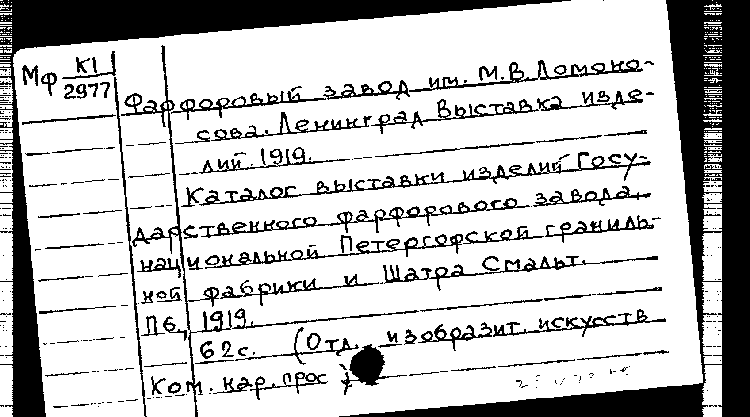 Мф К1
2977
Фарфоровый завод им. М.В. Ломоно-
сова. Ленинград Выставка изде-
лий. 1919.
Каталог выставки изделий Госу-
дарственного фарфорового завода,
национальной Петергофской граниль-
ной фабрики и Шатра Смальт.
Пб, 1919.
62с. (Отд. изобразит. искусств
Ком. нар. прос)